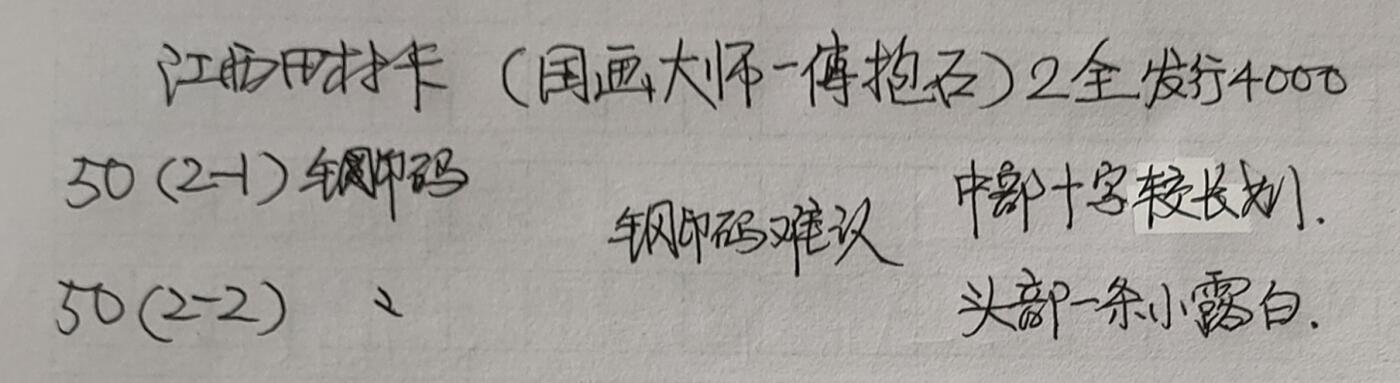 江西田村卡（国画大师-傅抱石）2全发行4000
50（2-1）钢印码
钢印码难认
中部十字较长划.
50（2-2） 〃
头部一条小露白.